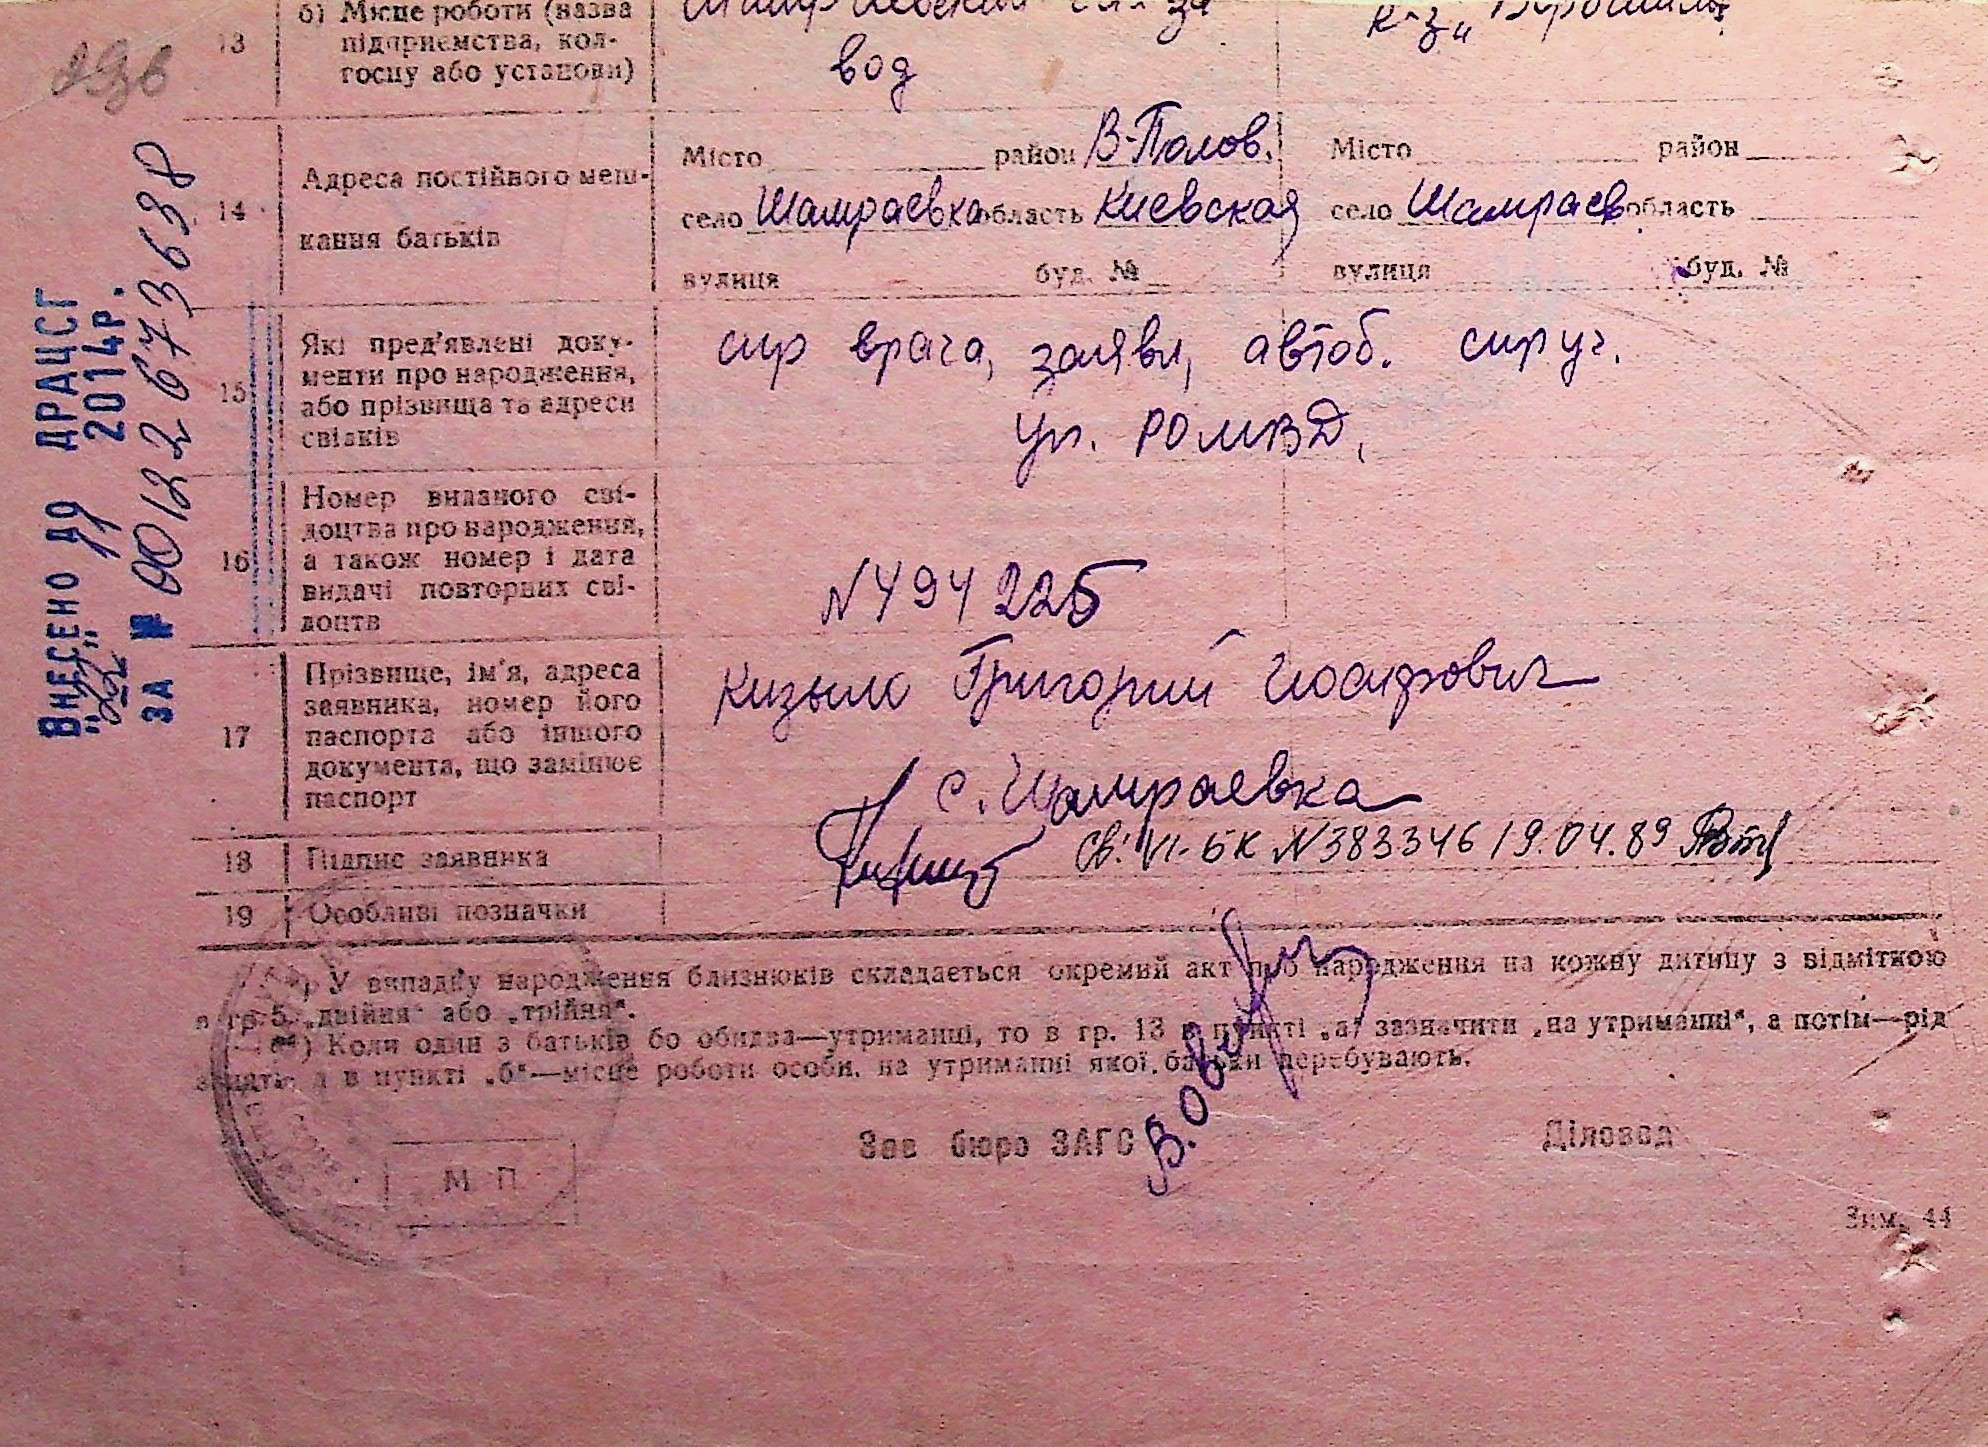 13 б) Місце роботи (назва підприємства, колгоспу або установи)
вод
к-з „
14 Адреса постійного мешкання батьків
Місто район В-Полов.
село Шамраевка область Киевская
вулиця буд. №
Місто район
село Шамраев область
вулиця буд. №
15 Які пред'явлені документи про народження, або прізвища та адреси свідків
спр врача, заявл, автоб. супруг.
уп. РОМВД,
16 Номер виданого свідоцтва про народження, а також номер і дата видачі повторних свідоцтв
N 494225
17 Прізвище, ім'я, адреса заявника, номер його паспорта або іншого документа, що замінює паспорт
Кизыло Григорий Иосифович
с. Шамраевка
18 Підпис заявника
Св: VI-БК N 383346 19.04.89
19 Особливі позначки
*) У випадку народження близнюків складається окремий акт про народження на кожну дитину з відміткою
в гр. 5 „двійня" або „трійня".
**) Коли один з батьків бо обидва—утриманці, то в гр. 13 в пункті „а" зазначити „на утриманні", а потім—рід
занять, а в пункті „б"—місце роботи особи, на утриманні якої батьки перебувають.
Зав бюро ЗАГС
Діловод
М П
Зим. 44
Внесено до ДРАЦСГ
„22" 11 2014р.
за № 00122673638